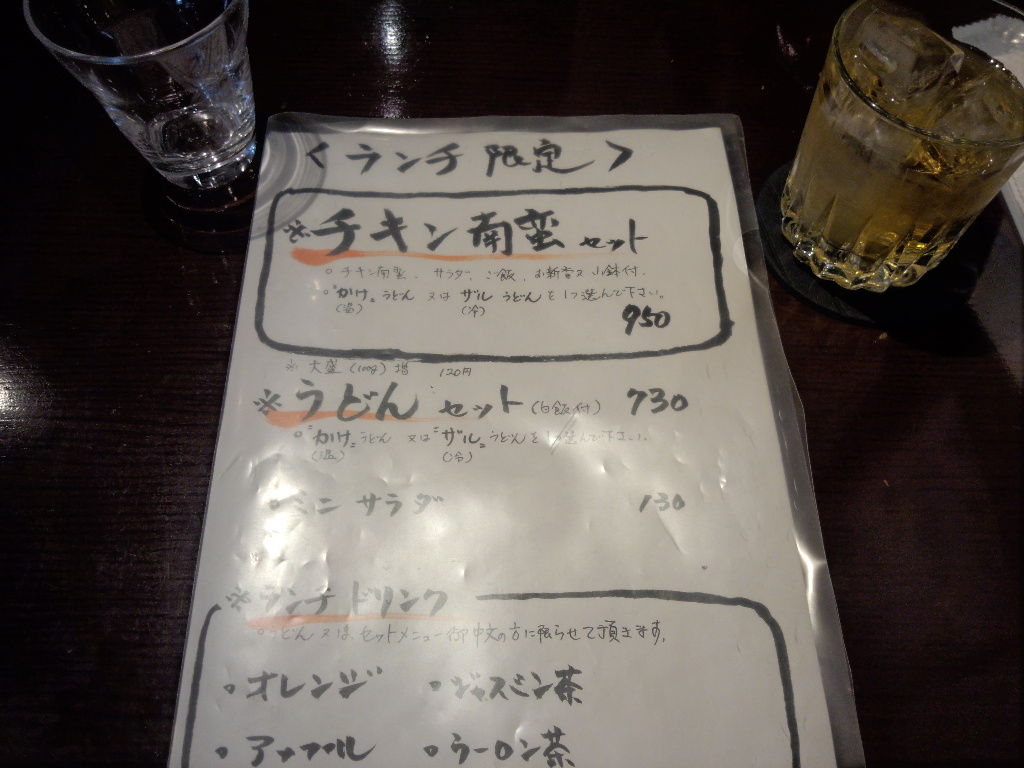 <ランチ限定>
※チキン南蛮 セット
○チキン南蛮、サラダ、ご飯、お新香又小鉢付.
○"かけ"うどん 又は ザル うどんを1つ選んで下さい。
(温) (冷)
950
※大盛(100g)増 120円
※うどん セット(白飯付) 730
○"かけ"うどん 又は"ザル"うどんを1つ選んで下さい.
(温) (冷)
○ミニ サラダ 130
※ランチドリンク
○うどん又はセットメニュー御注文の方に限らせて頂きます。
○オレンジ ○ジャスミン茶
○アップル ○ウーロン茶